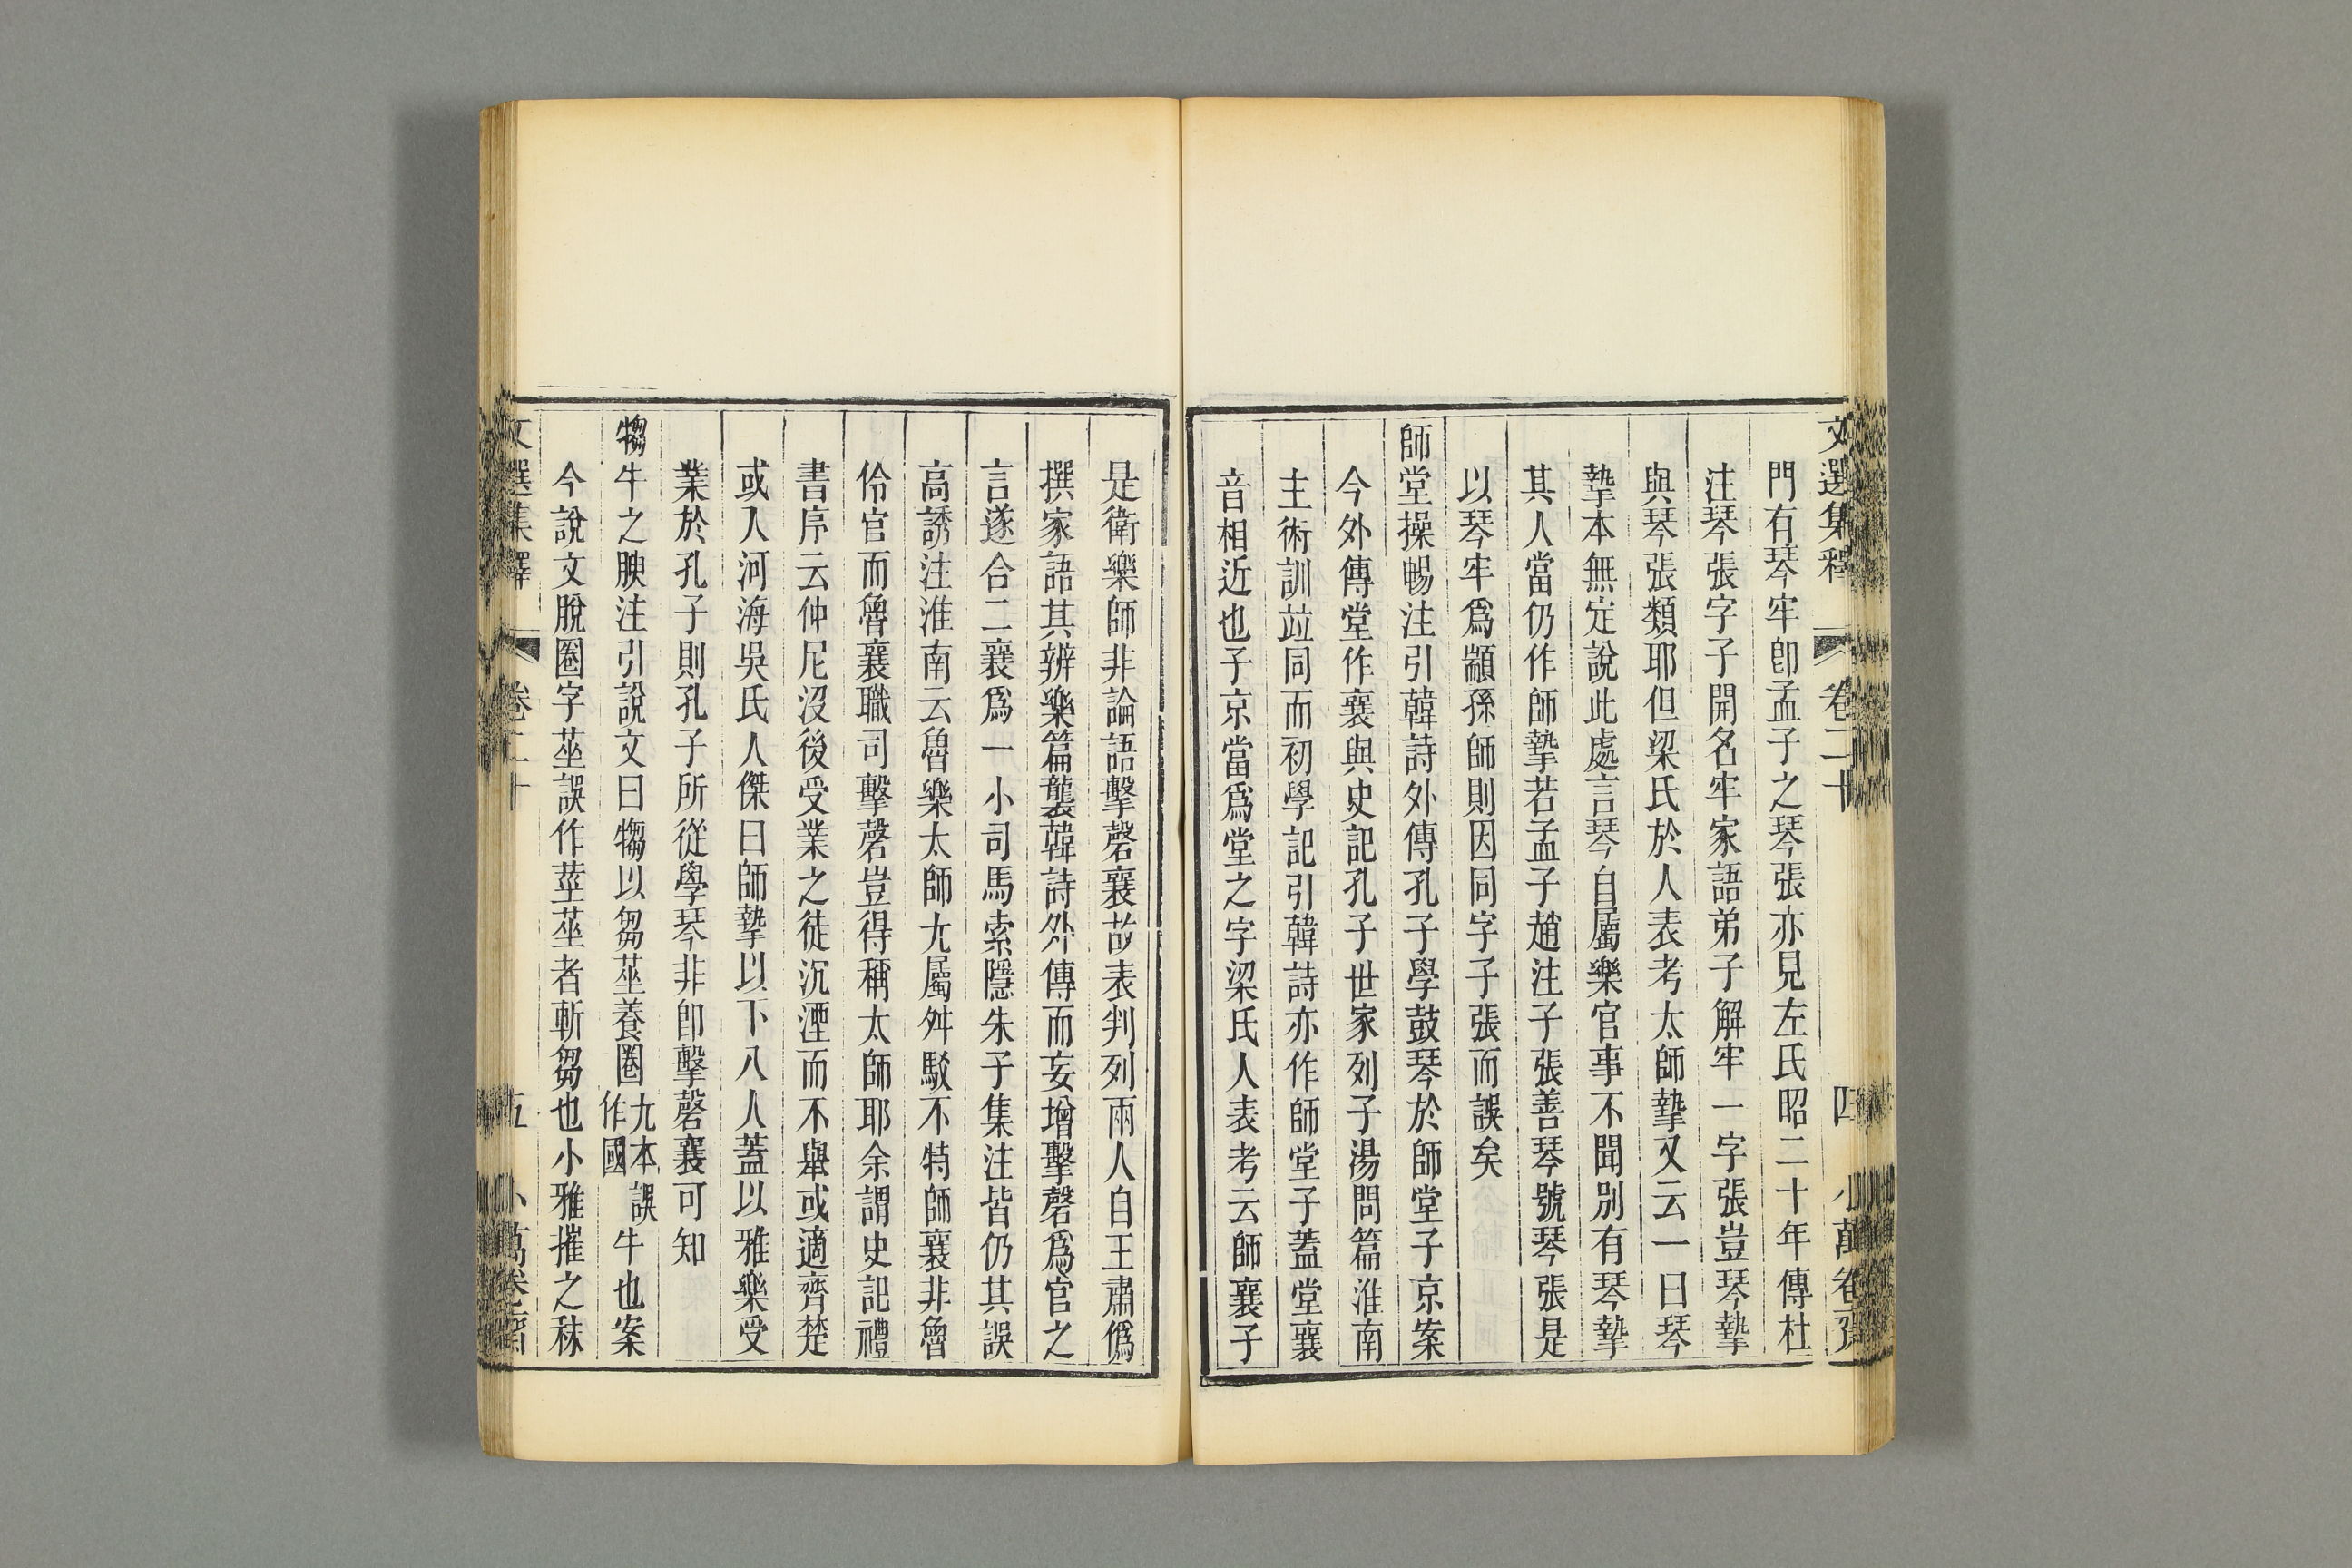 文選集釋 卷二十 四 小萬卷齋
門有琴牢卽孟子之琴張亦見左氏昭二十年傳杜
注琴張字子開名牢家語弟子解牢一字張豈琴摯
與琴張類耶但梁氏於人表考太師摯又云一曰琴
摯本無定說此處言琴自屬樂官事不聞別有琴摯
其人當仍作師摯若孟子趙注子張善琴號琴張是
以琴牢爲顓孫師則因同字子張而誤矣
師堂操暢注引韓詩外傳孔子學鼓琴於師堂子京案
今外傳堂作襄與史記孔子世家列子湯問篇淮南
主術訓竝同而初學記引韓詩亦作師堂子蓋堂襄
音相近也子京當爲堂之字梁氏人表考云師襄子
是衛樂師非論語擊磬襄故表判列兩人自王肅僞
撰家語其辨樂篇襲韓詩外傳而妄增擊磬爲官之
言遂合二襄爲一小司馬索隱朱子集注皆仍其誤
高誘注淮南云魯樂太師尢屬舛駁不特師襄非魯
伶官而魯襄職司擊磬豈得稱太師耶余謂史記禮
書序云仲尼沒後受業之徒沉湮而不舉或適齊楚
或入河海吳氏人傑曰師摯以下八人蓋以雅樂受
業於孔子則孔子所從學琴非卽擊磬襄可知
犓牛之腴注引說文曰犓以芻莝養圈尢本誤作國牛也案
今說文脫圈字莝誤作莖莝者斬芻也小雅摧之秣
文選集釋 卷二十 五 小萬卷齋